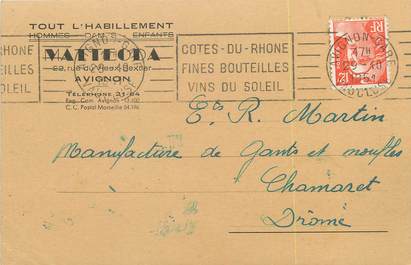 TOUT L'HABILLEMENT
HOMMES - DAMES - ENFANTS
MATTEODA
22, rue du Vieux Sextier
AVIGNON
TÉLÉPHONE 21-64
C. C. Postal Marseille
RHONE
BOUTEILLES
SOLEIL
COTES-DU-RHONE
FINES BOUTEILLES
VINS DU SOLEIL
AVIGNON GARE
VAUCLUSE
RF
12F
Ets R. Martin
Manufacture de Gants et moufles
Chamaret
Drôme